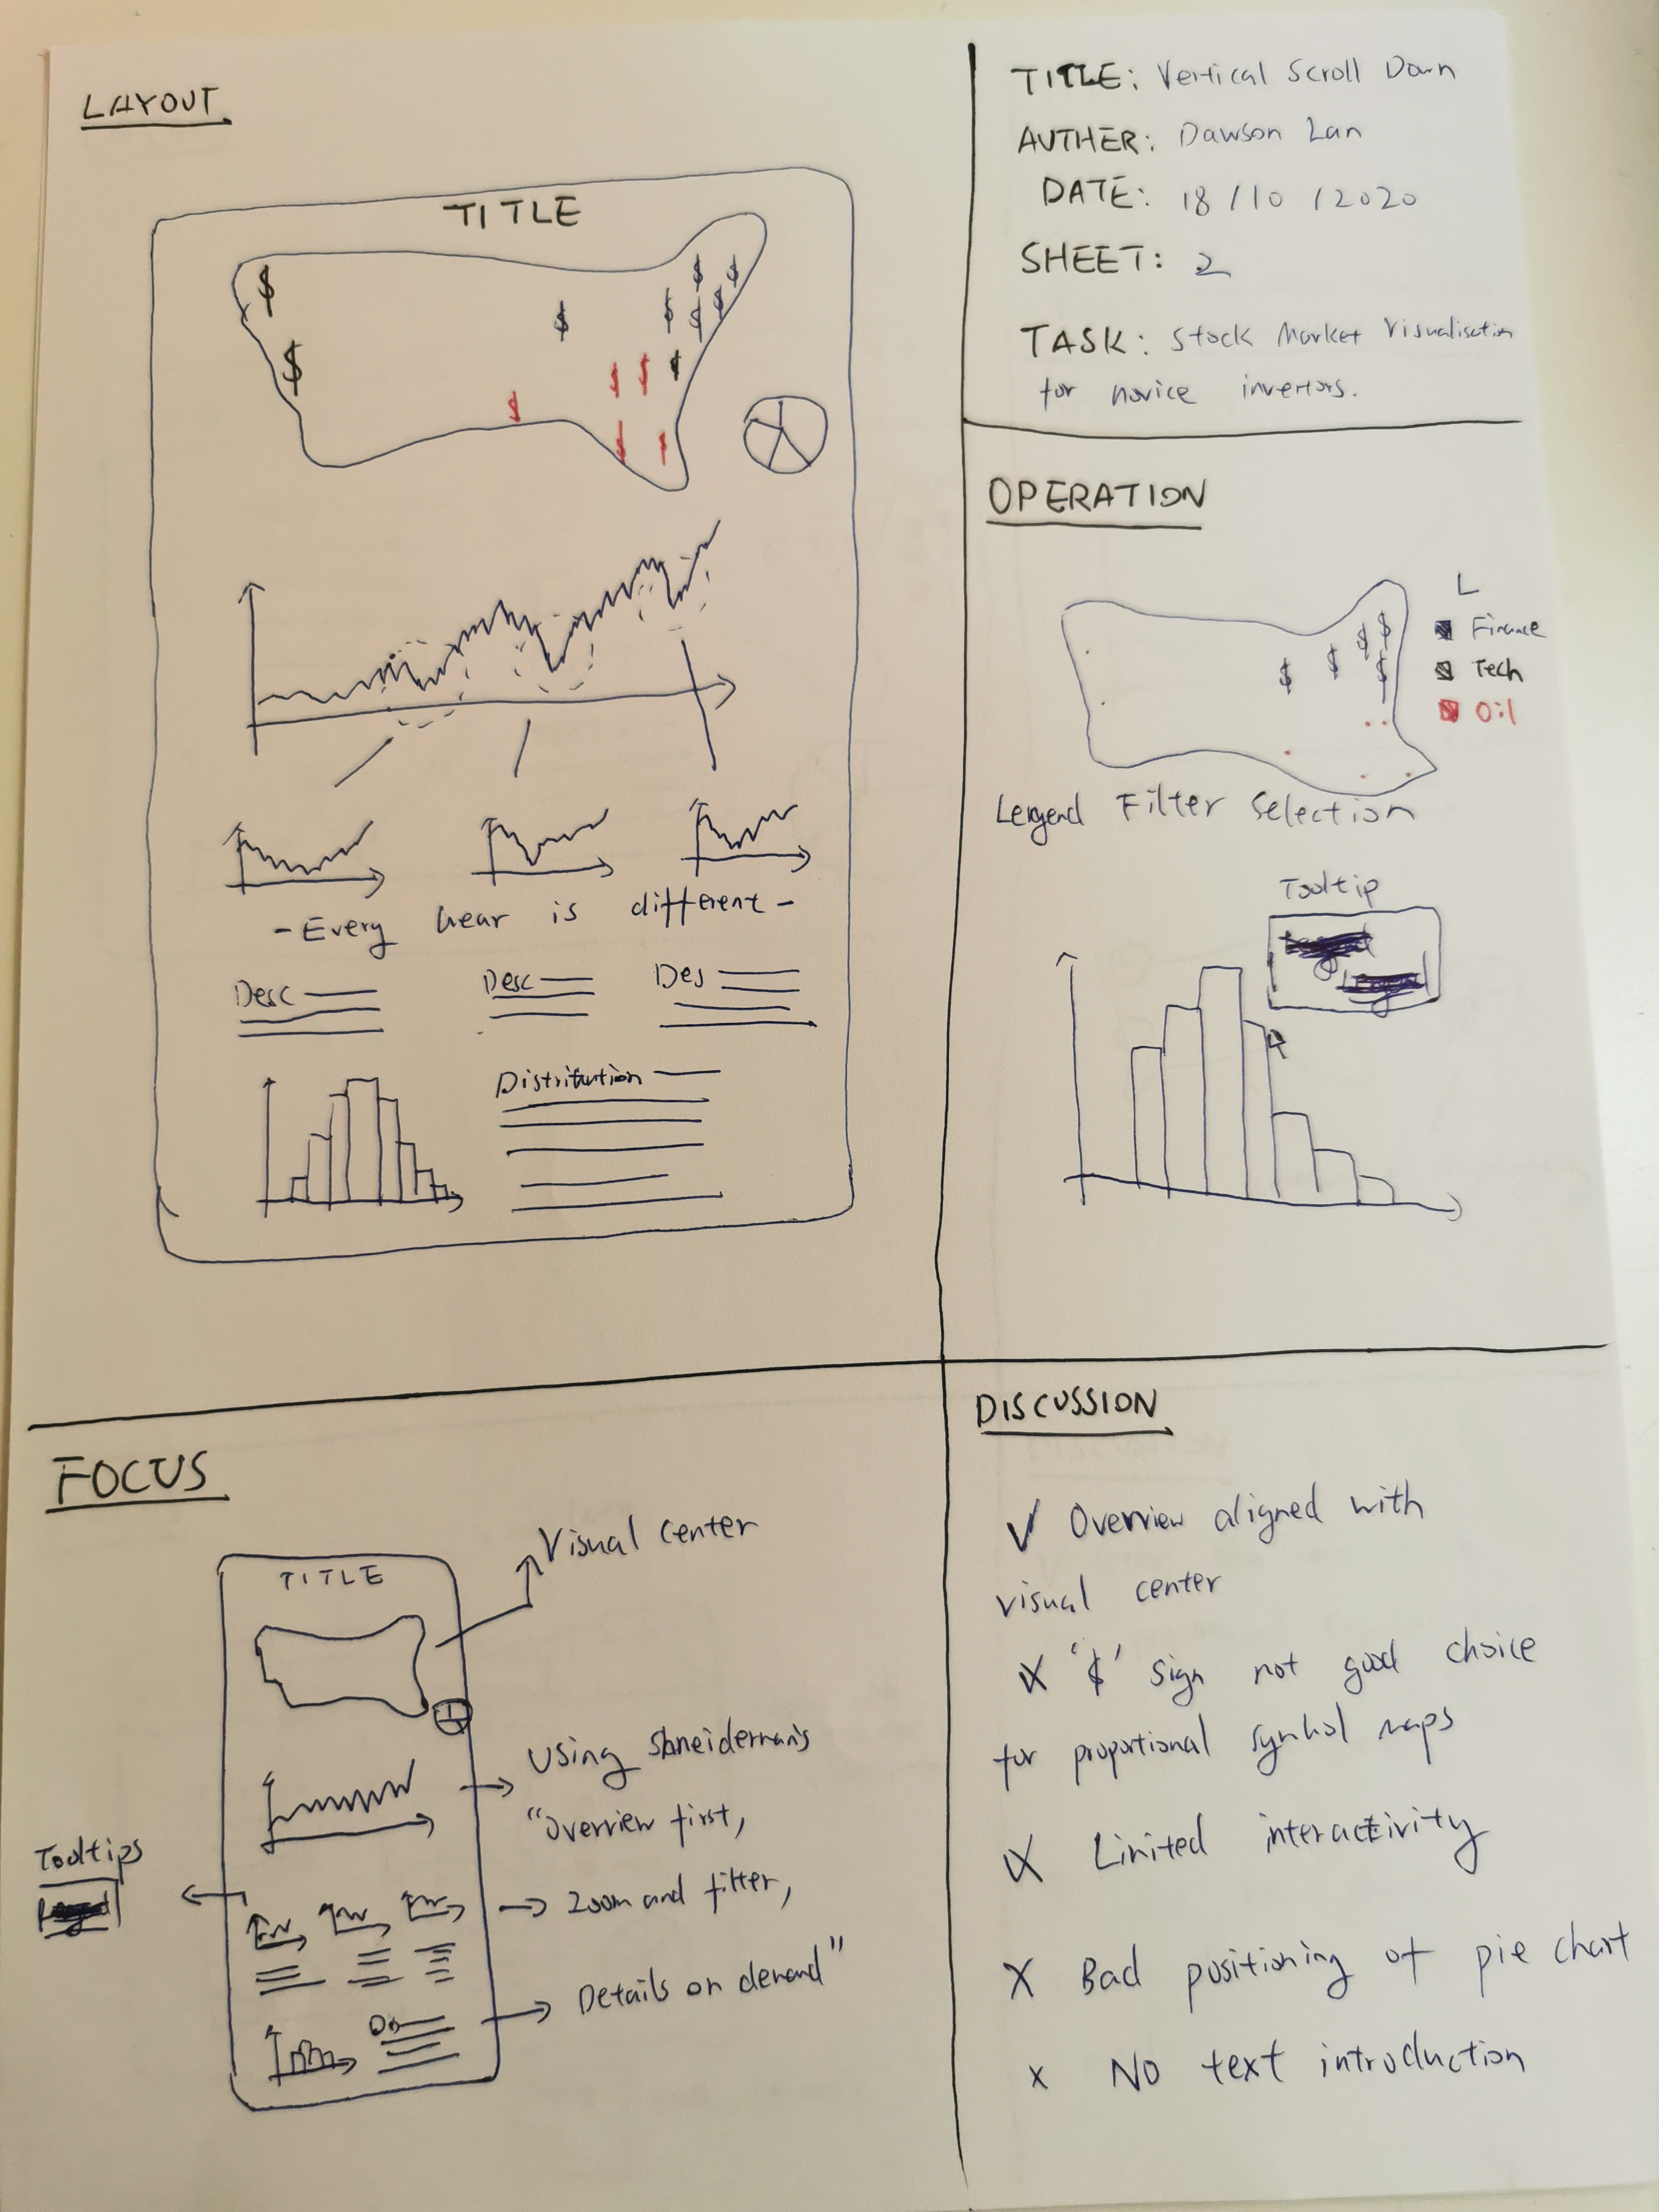 LAYOUT
TITLE
$ $ $ $ $ $ $ $
$ $ $ $
$ $ $
- Every hear is different -
Desc
Desc
Des
Distribution
TITLE: Vertical Scroll Down
AUTHER: Dawson Lan
DATE: 18/10/2020
SHEET: 2
TASK: Stock Market Visualisation
for novice invertors.
OPERATION
L
Finance
Tech
Oil
$ $ $ $ $
Lengend Filter Selection
Tooltip
FOCUS
TITLE
Visual center
Using Shneiderman's
"Overview first,
Zoom and filter,
Details on demand"
Tooltips
DISCUSSION
✓ Overview aligned with
visual center
X '$' sign not good choice
for proportional symbol maps
X Limited interactivity
X Bad positioning of pie chart
x No text introduction